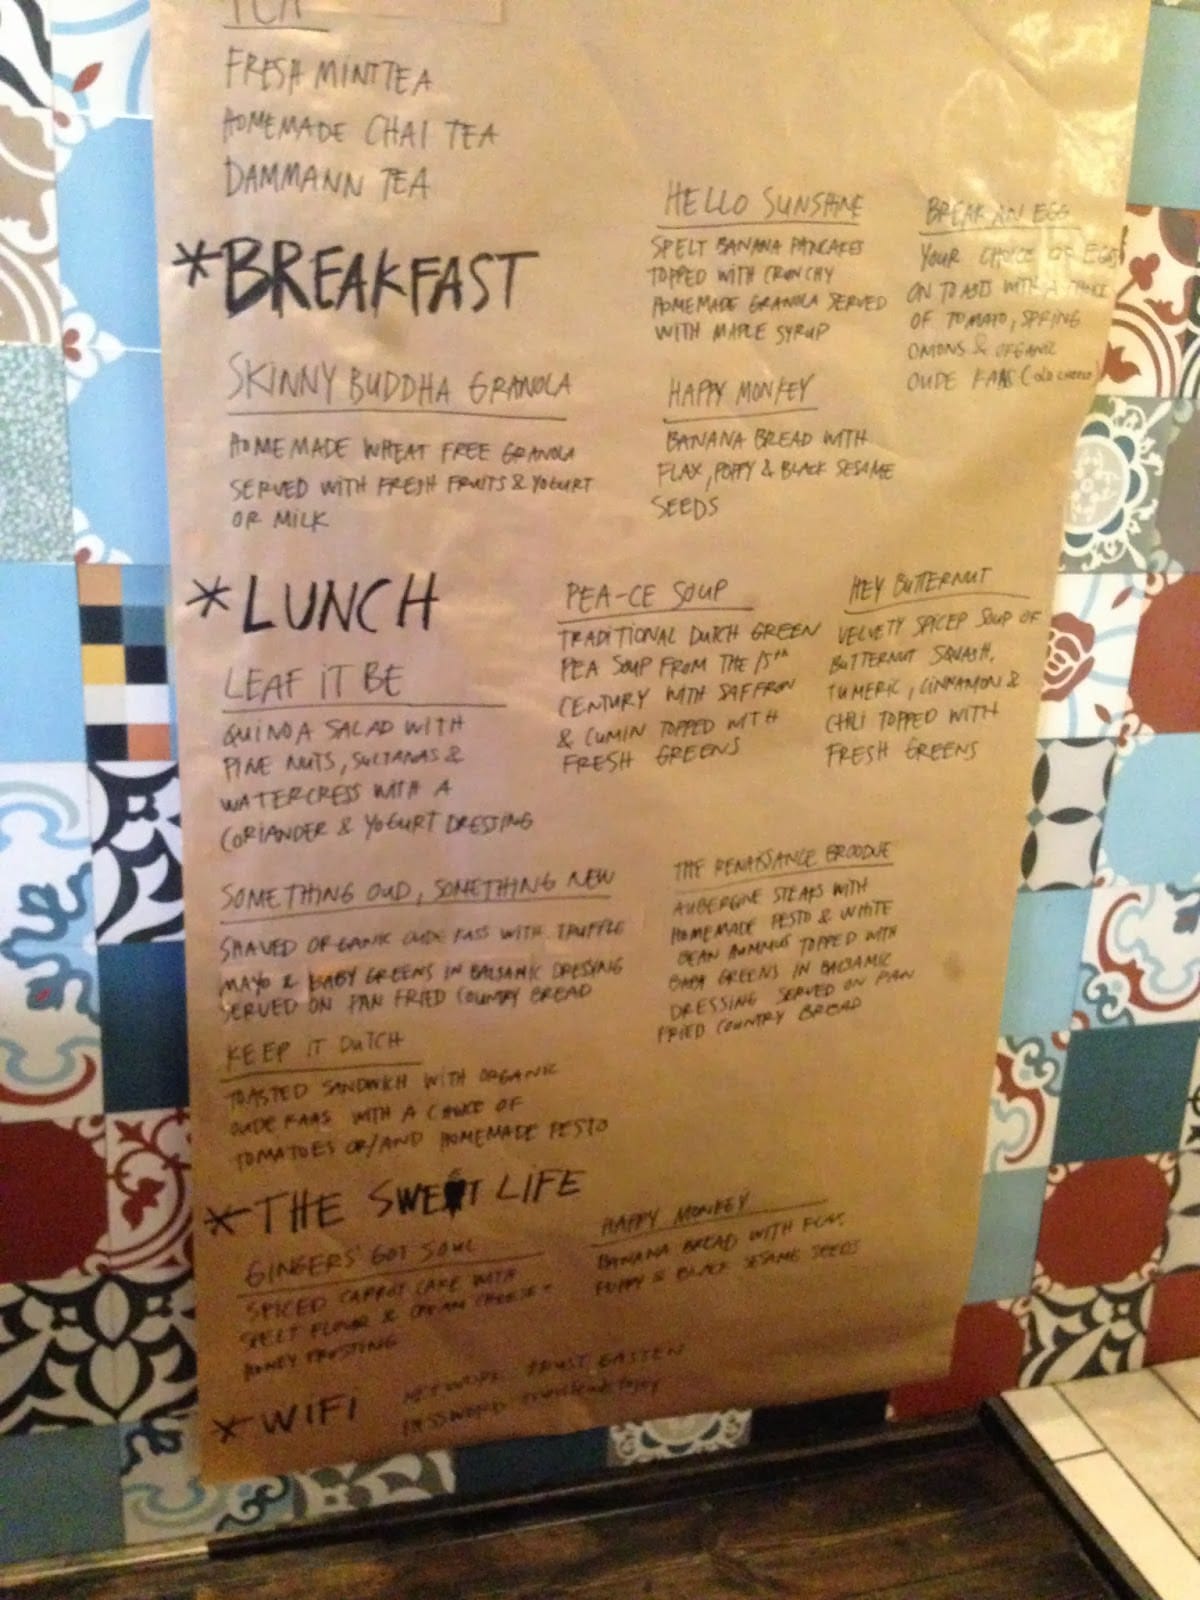 TEA
FRESH MINT TEA
HOMEMADE CHAI TEA
DAMMANN TEA
*BREAKFAST
SKINNY BUDDHA GRANOLA
HOMEMADE WHEAT FREE GRANOLA
SERVED WITH FRESH FRUITS & YOGURT
OR MILK
HELLO SUNSHINE
SPELT BANANA PANCAKES
TOPPED WITH CRUNCHY
HOMEMADE GRANOLA SERVED
WITH MAPLE SYRUP
HAPPY MONKEY
BANANA BREAD WITH
FLAX, POPPY & BLACK SESAME
SEEDS
BREAK AN EGG
YOUR CHOICE OF EGGS
ON TOASTS WITH A
OF TOMATO, SPRING
ONIONS & ORGANIC
OUDE KAAS (OLD CHEESE)
*LUNCH
LEAF IT BE
QUINOA SALAD WITH
PINE NUTS, SULTANAS &
WATERCRESS WITH A
CORIANDER & YOGURT DRESSING
PEA-CE SOUP
TRADITIONAL DUTCH GREEN
PEA SOUP FROM THE 15TH
CENTURY WITH SAFFRON
& CUMIN TOPPED WITH
FRESH GREENS
HEY BUTTERNUT
VELVETY SPICED SOUP OF
BUTTERNUT SQUASH,
TUMERIC, CINNAMON &
CHILI TOPPED WITH
FRESH GREENS
SOMETHING OUD, SOMETHING NEW
SHAVED ORGANIC OUDE KAAS WITH TRUFFLE
MAYO & BABY GREENS IN BALSAMIC DRESSING
SERVED ON PAN FRIED COUNTRY BREAD
THE RENAISSANCE BROODJE
AUBERGINE STEAKS WITH
HOMEMADE PESTO & WHITE
BEAN HUMMUS TOPPED WITH
BABY GREENS IN BALSAMIC
DRESSING SERVED ON PAN
FRIED COUNTRY BREAD
KEEP IT DUTCH
TOASTED SANDWICH WITH ORGANIC
OUDE KAAS WITH A CHOICE OF
TOMATOES OR/AND HOMEMADE PESTO
*THE SWEET LIFE
GINGERS GOT SOUL
SPICED CARROT CAKE WITH
SPELT FLOUR & CREAM CHEESE-
HONEY FROSTING
HAPPY MONKEY
BANANA BREAD WITH FLAX,
POPPY & BLACK SESAME SEEDS
*WIFI
NETWORK TRUST EASTEN
PASSWORD